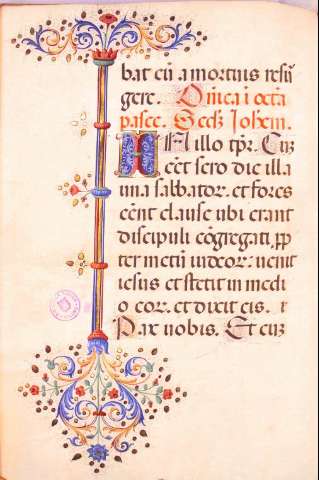 bat eū a mortuis resur
gere. Dn̄ica i octa
pasce. Secd̄z Ioħem.
IN illo tp̄r. Cuz
eēt sero die illa
una sabbator. et fores
eēnt clause ubi erant
discipuli cōgregati. p̄p
ter metū iudeor: uenit
iesus et stetit in medi
o eor. et dixit eis.
Pax uobis. Et cuz